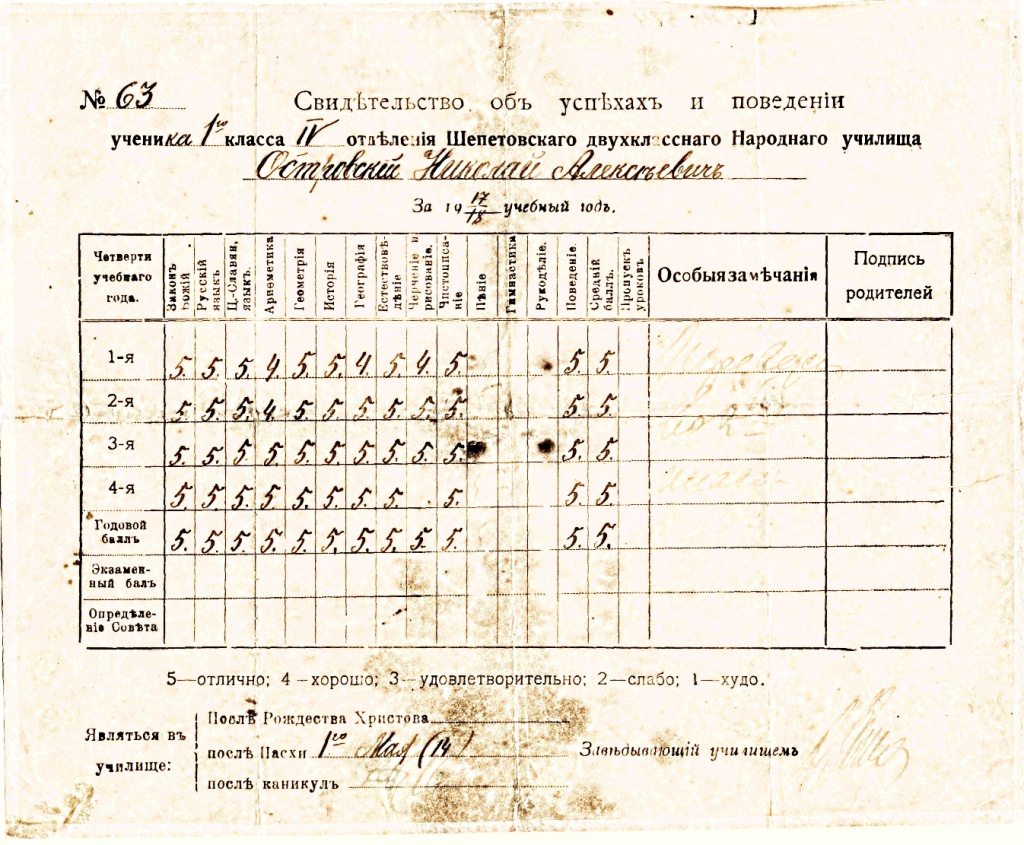 № 63 Свидѣтельство объ успѣхахъ и поведеніи
ученика 1го класса IV отдѣленія Шепетовскаго двухкласснаго Народнаго училища
Островскій Николай Алексѣевичъ
За 19 17/18 учебный годъ.
Четверти учебнаго года. Законъ Божій Русскій языкъ Ц.-Славян. языкъ. Ариөметика Геометрія Исторія Географія Естествовѣдѣніе Черченіе и рисованіе. Чистописаніе Пѣніе Гимнастика Рукодѣліе. Поведеніе. Средній баллъ. Пропускъ уроковъ. Особыя замѣчанія Подпись родителей
1-я 5. 5. 5. 4. 5. 5. 4. 5. 4. 5. 5. 5.
2-я 5. 5. 5. 4. 5. 5. 5. 5. 5. 5. 5. 5.
3-я 5. 5. 5 5. 5. 5. 5. 5. 5. 5. 5. 5.
4-я 5. 5. 5. 5. 5. 5. 5. 5. 5. 5. 5.
Годовой баллъ 5. 5. 5. 5. 5. 5. 5. 5. 5. 5. 5. 5.
Экзаменный балъ
Опредѣленіе Совѣта
5—отлично; 4—хорошо; 3—удовлетворительно; 2—слабо; 1—худо.
Являться въ училище:
Послѣ Рождества Христова
послѣ Пасхи 1го Мая (14)
послѣ каникул
Завѣдывающій училищемъ